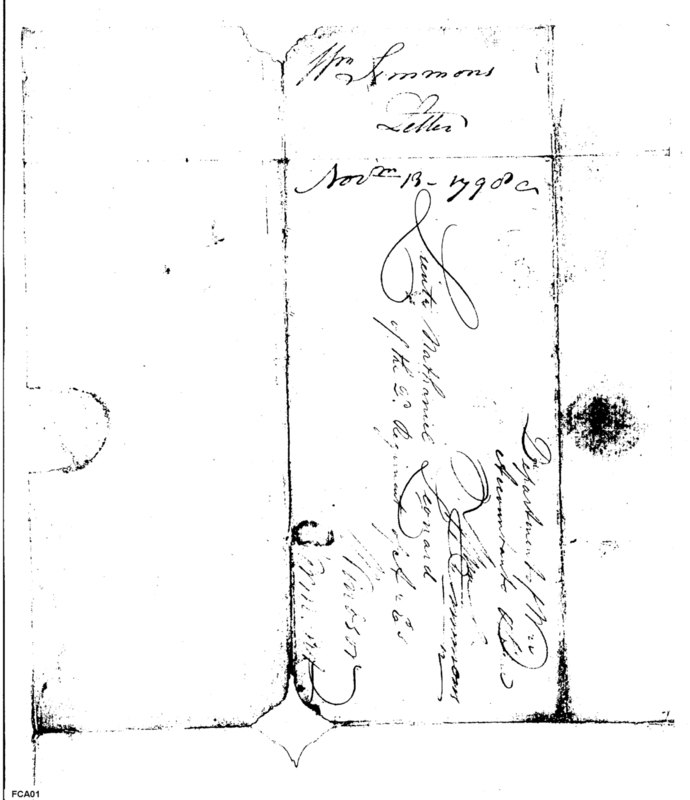 Wm Simmons
Letter
Novem 13 - 1798
Department of War
Accountants
Wm Simmons
Lieut Nathaniel Leonard
of the 2d Regiment of
Windsor
FCA01